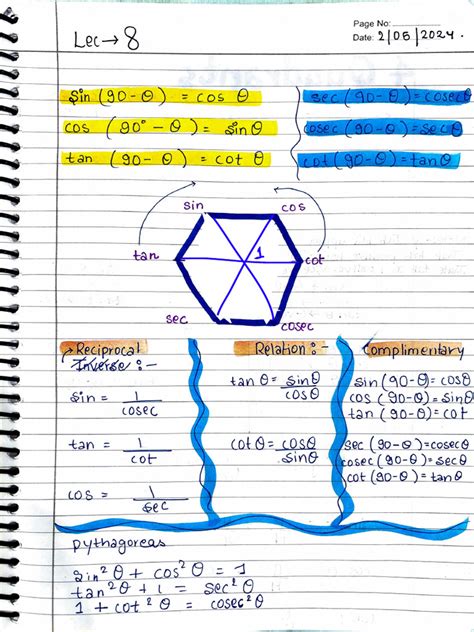 Page No:
Lec → 8
Date: 2/05/2024.
sin (90-θ) = cos θ
cos (90°-θ) = sinθ
tan (90-θ) = cotθ
sec (90-θ) = cosecθ
cosec (90-θ) = secθ
cot (90-θ) = tanθ
sin
cos
tan
1
cot
sec
cosec
Reciprocal
Inverse :-
sin = 1/cosec
tan = 1/cot
cos = 1/sec
Relation :-
tanθ = sinθ/cosθ
cotθ = cosθ/sinθ
Complimentary
sin (90-θ) = cosθ
cos (90-θ) = sinθ
tan (90-θ) = cot
sec (90-θ) = cosecθ
cosec (90-θ) = secθ
cot (90-θ) = tanθ
Pythagoreas
sin²θ + cos²θ = 1
tan²θ + 1 = sec²θ
1 + cot²θ = cosec²θ